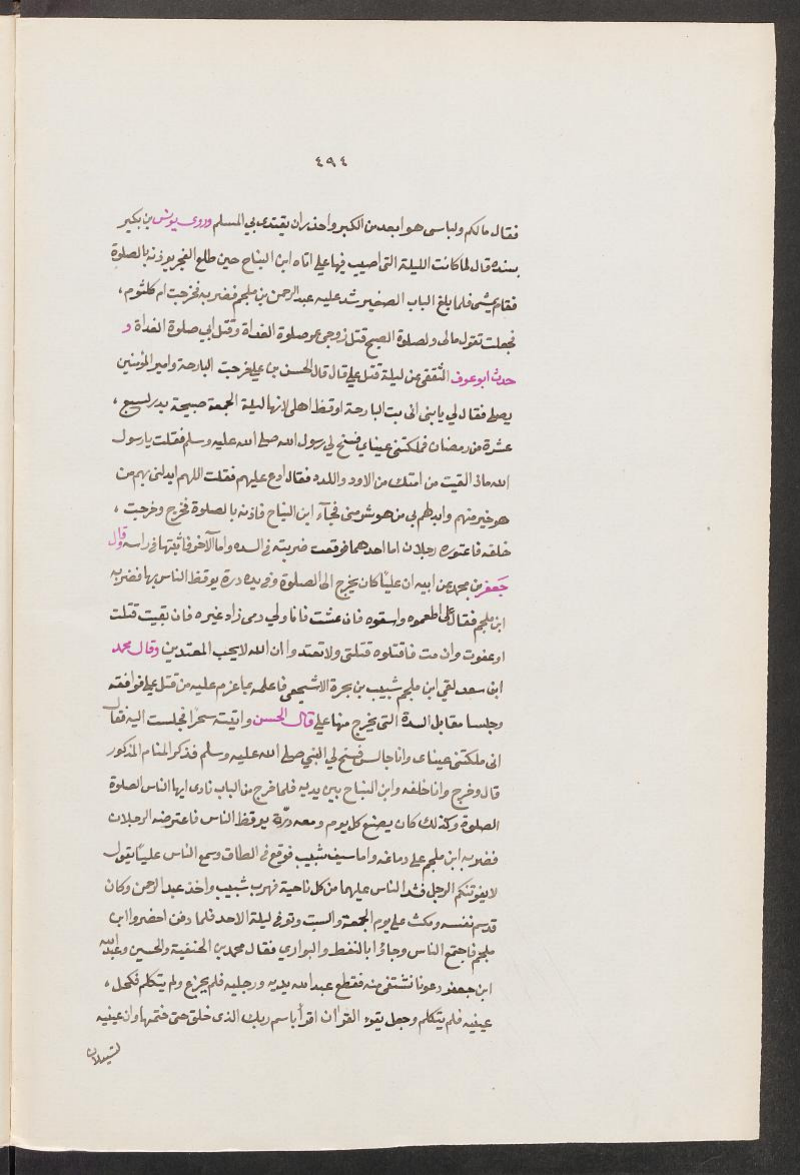 ٤٩٤
فقال مالكم ولباسى هو ابعد من الكبر واحذر ان يقتدى بي المسلم وروى يونس بن بكير
بسنده قال لما كانت الليلة التى اصيب فيها على اتاه ابن النباح حين طلع الفجر يوذنه بالصلوة
فقام يمشى فلما بلغ الباب الصغير شد عليه عبد الرحمن بن ملجم فضربه فخرجت ام كلثوم ،
فجعلت تقول مالى ولصلوة الصبح قتل زوجى عمر صلوة الغداة وقتل ابي صلوة الغداة و
حدث ابو عوف الثقفى عن ليلة قتل علي قال قال الحسن بن علي خرجت البارحة وامير المؤمنين
يصلى فقال لي يا بنى انى بت البارحة اوقظ اهلى لانها ليلة الجمعة صبيحة بدر لسبع ،
عشرة من رمضان فملكتنى عيناي فسنح لي رسول الله صلى الله عليه وسلم فقلت يا رسول
الله ماذا لقيت من امتك من الاود واللدد فقال ادع عليهم فقلت اللهم ابدلنى بهم من
هو خير منهم وابدلهم بي من هو شر منى فجآء ابن النباح فاذنه بالصلوة فخرج وخرجت ،
خلفه فاعتوره رجلان اما احدهما فوقعت ضربته فى السده واما الآخر فاثبتها فى راسه وقال
جعفر بن محمد عن ابيه ان عليًا كان يخرج الى الصلوة وفى يده درة يوقظ الناس بها فضربه
ابن ملجم فقال علي اطعموه واسقوه فان عشت فانا ولي دمى زاد غيره فان بقيت قتلت
او عفوت وان مت فاقتلوه قتلتى ولا تعتدوا ان الله لا يحب المعتدين وقال محمد
ابن سعد لقي ابن ملجم شبيب بن بجرة الاشجعى فاعلمه بما عزم عليه من قتل علي فوافقه
وجلسا مقابل السدة التى يخرج منها علي قال الحسن واتيته سحرًا فجلست اليه فقال
انى ملكتنى عيناى وانا جالس فسنح لي النبي صلى الله عليه وسلم فذكر المنام المذكور
قال وخرج وانا خلفه وابن النباح بين يديه فلما خرج من الباب نادى ايها الناس الصلوة
الصلوة وكذلك كان يصنع كل يوم ومعه درّة يوقظ الناس فاعترضه الرجلان
فضربه ابن ملجم على دماغه واما سيف شبيب فوقع فى الطاق وسمع الناس عليًا يقول
لا يفوتنكم الرجل فشد الناس عليهما من كل ناحية فهرب شبيب واخذ عبد الرحمن وكان
قد سم نفسه ومكث علي يوم الجمعة والسبت وتوفى ليلة الاحد فلما دفن احضروا ابن
ملجم فاجتمع الناس وجاؤا بالنفط والبوارى فقال محمد بن الحنفية والحسين وعبد الله
ابن جعفر دعونا نشتفى منه فقطع عبد الله يديه ورجليه فلم يجزع ولم يتكلم فكحل ،
عينيه فلم يتكلم وجعل يقرء القرآن اقرأ باسم ربك الذى خلق حتى ختمها وان عينيه
لتسيلان